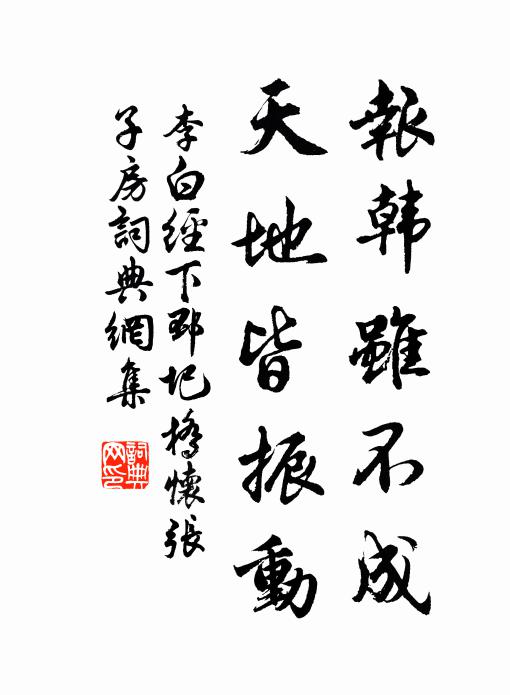 報韓雖不成
天地皆振動
李白經下邳圯橋懷張
子房詞典網集
詞典
网印